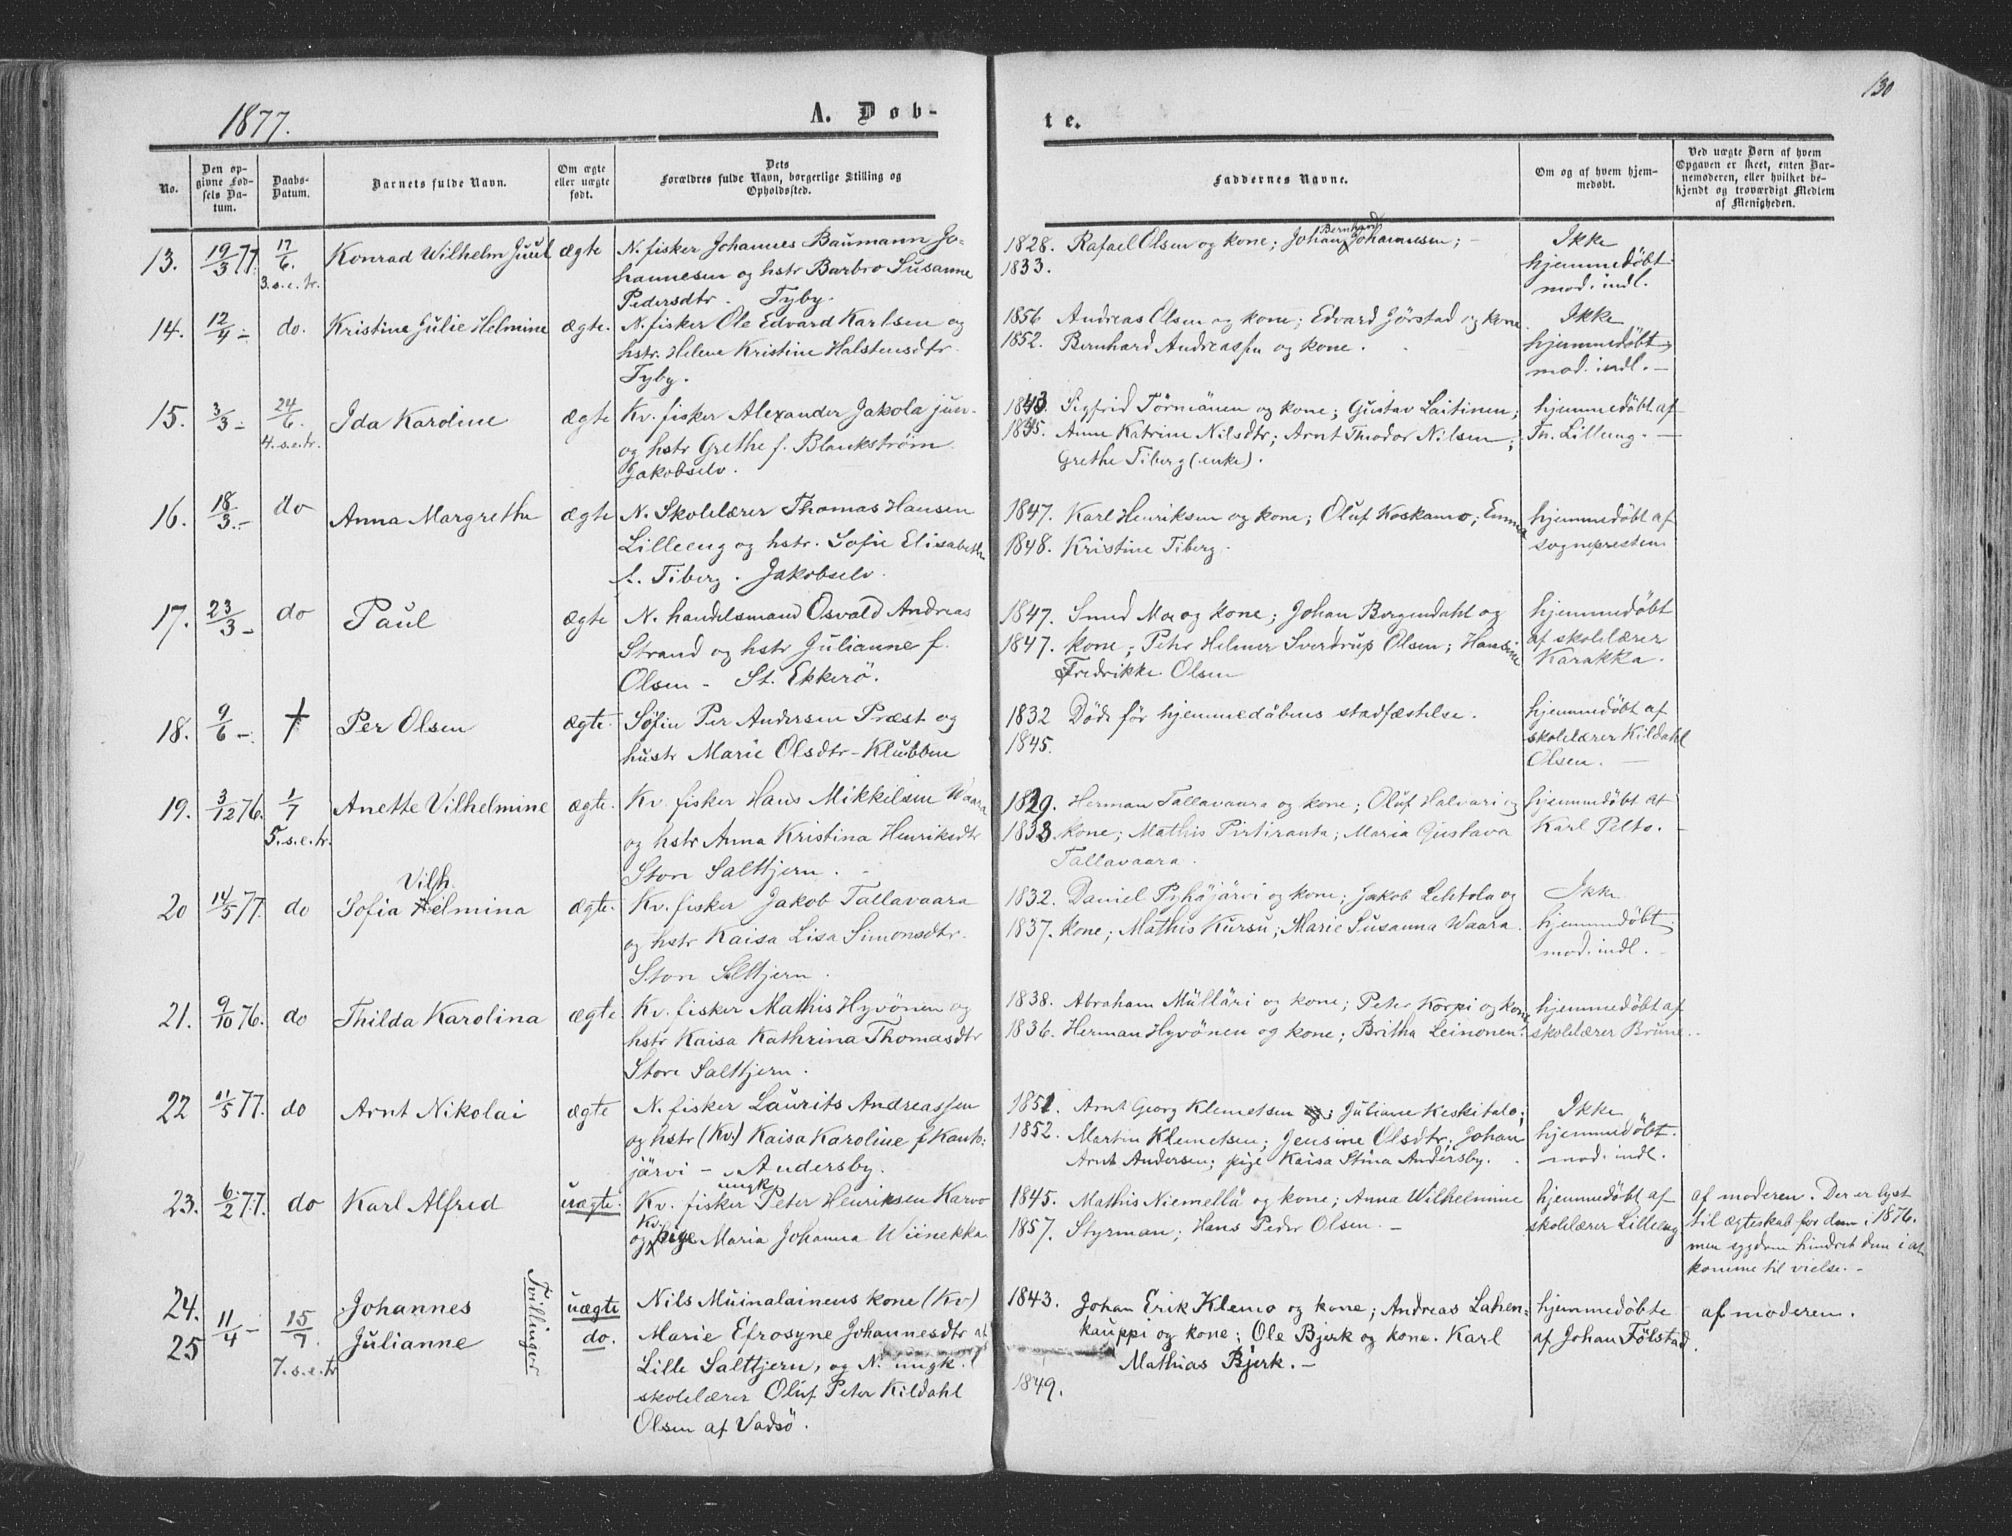 1877.
A. Døb-
te.
130
No.
Den opgivne Fødsels Datum.
Daabs-Datum.
Barnets fulde Navn.
Om ægte eller uægte født.
Dets Forældres fulde Navn, borgerlige Stilling og Opholdssted.
Faddernes Navne.
Om og af hvem hjemmedøbt.
Ved uægte Børn af hvem Opgaven er skeet, enten Barnemoderen, eller hvilket bekjendt og troværdigt Medlem af Menigheden.
13. 19/3 77. 17/6. 3.s.e.tr. Konrad Wilhelm Juul ægte
N. fisker Johannes Baumann Jo-
hannesen og hstr Barbro Susanne
Pedersdtr. Tyby.
1828. Rafael Olsen og kone; Johan Bernhard Johannesen; -
1833.
Ikke
hjemmedøbt
mod. indl.
14. 12/4 - do. Kristine Julie Helmine ægte.
N. fisker Ole Edvard Karlsen og
hstr. Helene Kristine Halstensdtr.
Tyby.
1856 Andreas Olsen og kone; Edvard Jørstad og kone.
1852. Bernhard Andreassen og kone.
Ikke
hjemmedøbt;
mod. indl. -
15. 3/3 - 24/6. 4.s.e.tr. Ida Karoline ægte
Kv. fisker Alexander Jakola jun.
og hstr Grethe f. Blankström
Jakobselv.
1843. Sigfrid Törmänen og kone; Gustav Laitinen;
1835. Anne Katrine Nilsdtr; Arnt Theodor Nilsen;
Grethe Tiberg (enke).
hjemmedøbt af
Th. Lilleeng. -
16. 18/3. - do Anna Margrethe ægte
N. Skolelærer Thomas Hansen
Lilleeng og hstr. Sofie Elisabeth
f. Tiberg. Jakobselv.
1847. Karl Henriksen og kone; Oluf Koskamo; Emma
1848. Kristine Tiberg.
hjemmedøbt af
sognepresten
17. 23/3 - do Paul ægte
N. handelsmand Osvald Andreas
Strand og hstr Julianne f.
Olsen - St. Ekkerö.
1847. Smed Moe og kone; Johan Bergendahl og
1847. kone; Peter Helmer Sverdrup Olsen; Hansine
Fredrikke Olsen
hjemmedøbt
af skolelærer
Karakka.
18. 9/6 -. † Per Olsen ægte.
Søfin Per Andersen Præst og
hustr Marie Olsdtr - Klubben
1832 Døde før hjemmedåbens stadfæstelse.
1845.
hjemmedøbt af
skolelærer Kildahl
Olsen. -
19. 3/12 76. 1/7 5.s.e.tr. Anette Vilhelmine ægte.
Kv. fisker Hans Mikkelsen Waara
og hstr Anna Kristina Henriksdtr
Store Salttjern.
1829. Herman Tallavaara og kone; Oluf Halvari og
1833 kone; Mathis Pirtiranta; Maria Gustava
Tallavaara.
hjemmedøbt af
Karl Pelto.
20 14/5 77. do Sofia Vilhelmina ægte.
Kv. fisker Jakob Tallavaara
og hstr Kaisa Lisa Simonsdtr.
Store Salttjern.
1832. Daniel Pyhäjärvi og kone; Jakob Lehtola og
1837. kone; Mathis Kursu; Marie Susanna Waara.
Ikke
hjemmedøbt;
mod. indl. -
21. 9/10 76. do Thilda Karolina ægte
Kv. fisker Mathis Hyvönen og
hstr Kaisa Kathrina Thomasdtr
Store Salttjern.
1838. Abraham Mülläri og kone; Peter Korpi og kone
1836. Herman Hyvönen og kone; Britha Leinonen.
hjemmedøbt af
skolelærer Brune.
22 11/5 77. do Arnt Nikolai ægte
N. fisker Laurits Andreassen
og hstr (Kv.) Kaisa Karoline f Kauko-
järvi - Andersby.
1851. Arnt Georg Klemetsen; Juliane Keskitalo;
1852. Martin Klemetsen; Jensine Olsdtr; Johan
Arnt Andersen; pige Kaisa Stina Andersby.
Ikke
hjemmedøbt.
mod. indl.
23. 6/2 77. do Karl Alfred uægte.
Kv. fisker ungk. Peter Henriksen Karvo
og Kv. pige Maria Johanna Wiinekka
1845. Mathis Niemellä og kone; Anna Wilhelmine
1857. Styrman; Hans Peder Olsen. -
hjemmedøbt af
skolelærer Lilleeng
af moderen. Der er lyst
til ægteskab for dem i 1876.
men sygdom hindret dem i at
komme til vielse. -
24. 11/4 - 15/7. 7.s.e.tr Johannes Tvillinger uægte
25 Julianne do.
Nils Muinalainens kone (Kv.)
Marie Efrosyne Johannesdtr af
Lille Salttjern, og N. ungk.
skolelærer Oluf Peter Kildahl
Olsen af Vadsö.
1843. Johan Erik Klemo og kone; Andreas Lahen-
kauppi og kone; Ole Bjerk og kone. Karl
Mathias Bjerk. -
1849.
hjemmedøbte
af Johan Fölstad.
af moderen.